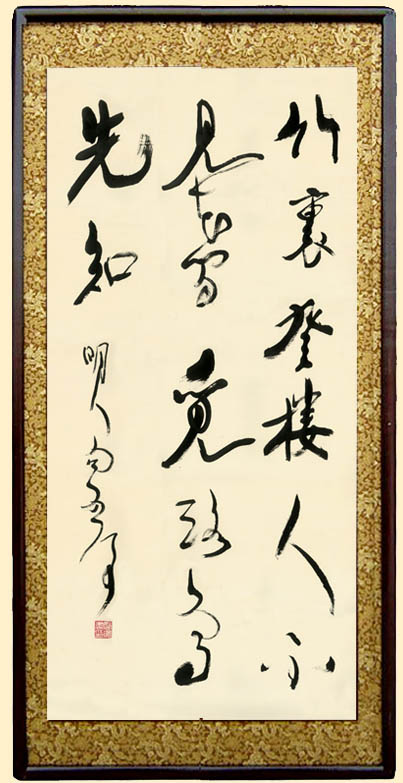 竹裏登樓人不
見花間覓路鳥
先知
明人句